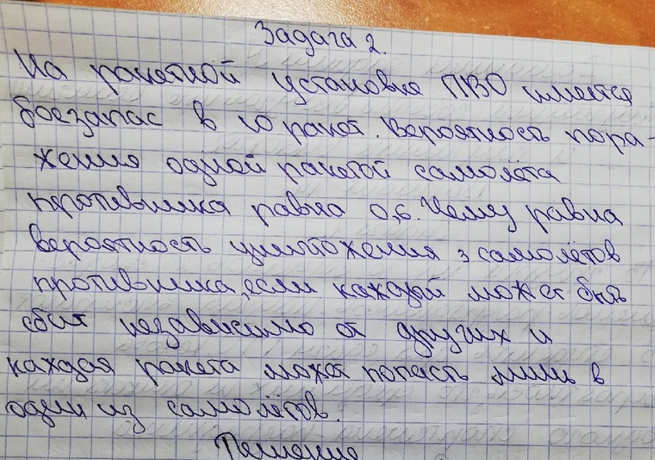 Задача 2.
На ракетной установке ПВО имеется
боезапас в 10 ракет. Вероятность пора-
жения одной ракетой самолёта
противника равна 0,6. Чему равна
вероятность уничтожения 3 самолётов
противника, если каждый может быть
сбит независимо от других и
каждая ракета может попасть лишь в
один из самолётов.
Решение